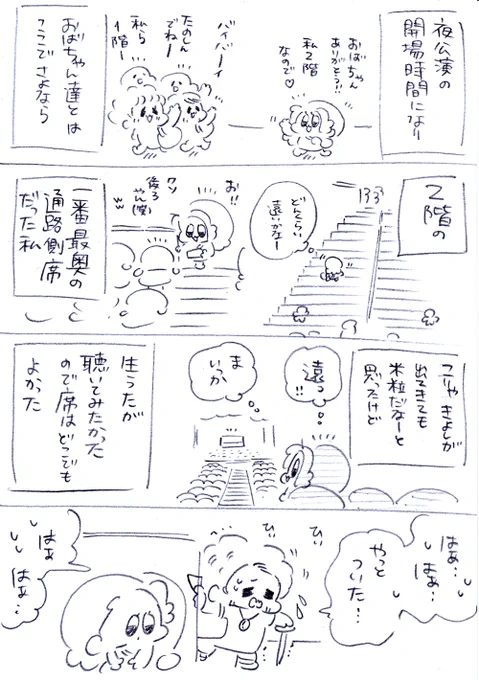 夜公演の
開場時間になり
おばちゃん
ありがとう!!
私2階
なので♡
バイバーイ
たのしん
でねー
私ら
1階ー
おばちゃん達とは
ここでさよなら
2階の
どんくらい
遠いかなー
お!!
ウソ
後ろ
やん(笑)
ww
一番最奥の
通路側席
だった私
こりゃきよしが
出てきても
米粒だなーと
思ったけど
遠っ
!!
ま
いっか
生うたが
聴いてみたかった
ので席はどこでも
よかった
はぁ…
はぁ…
やっと
ついた…
ひぃ
ひぃ
はぁ
はぁ…